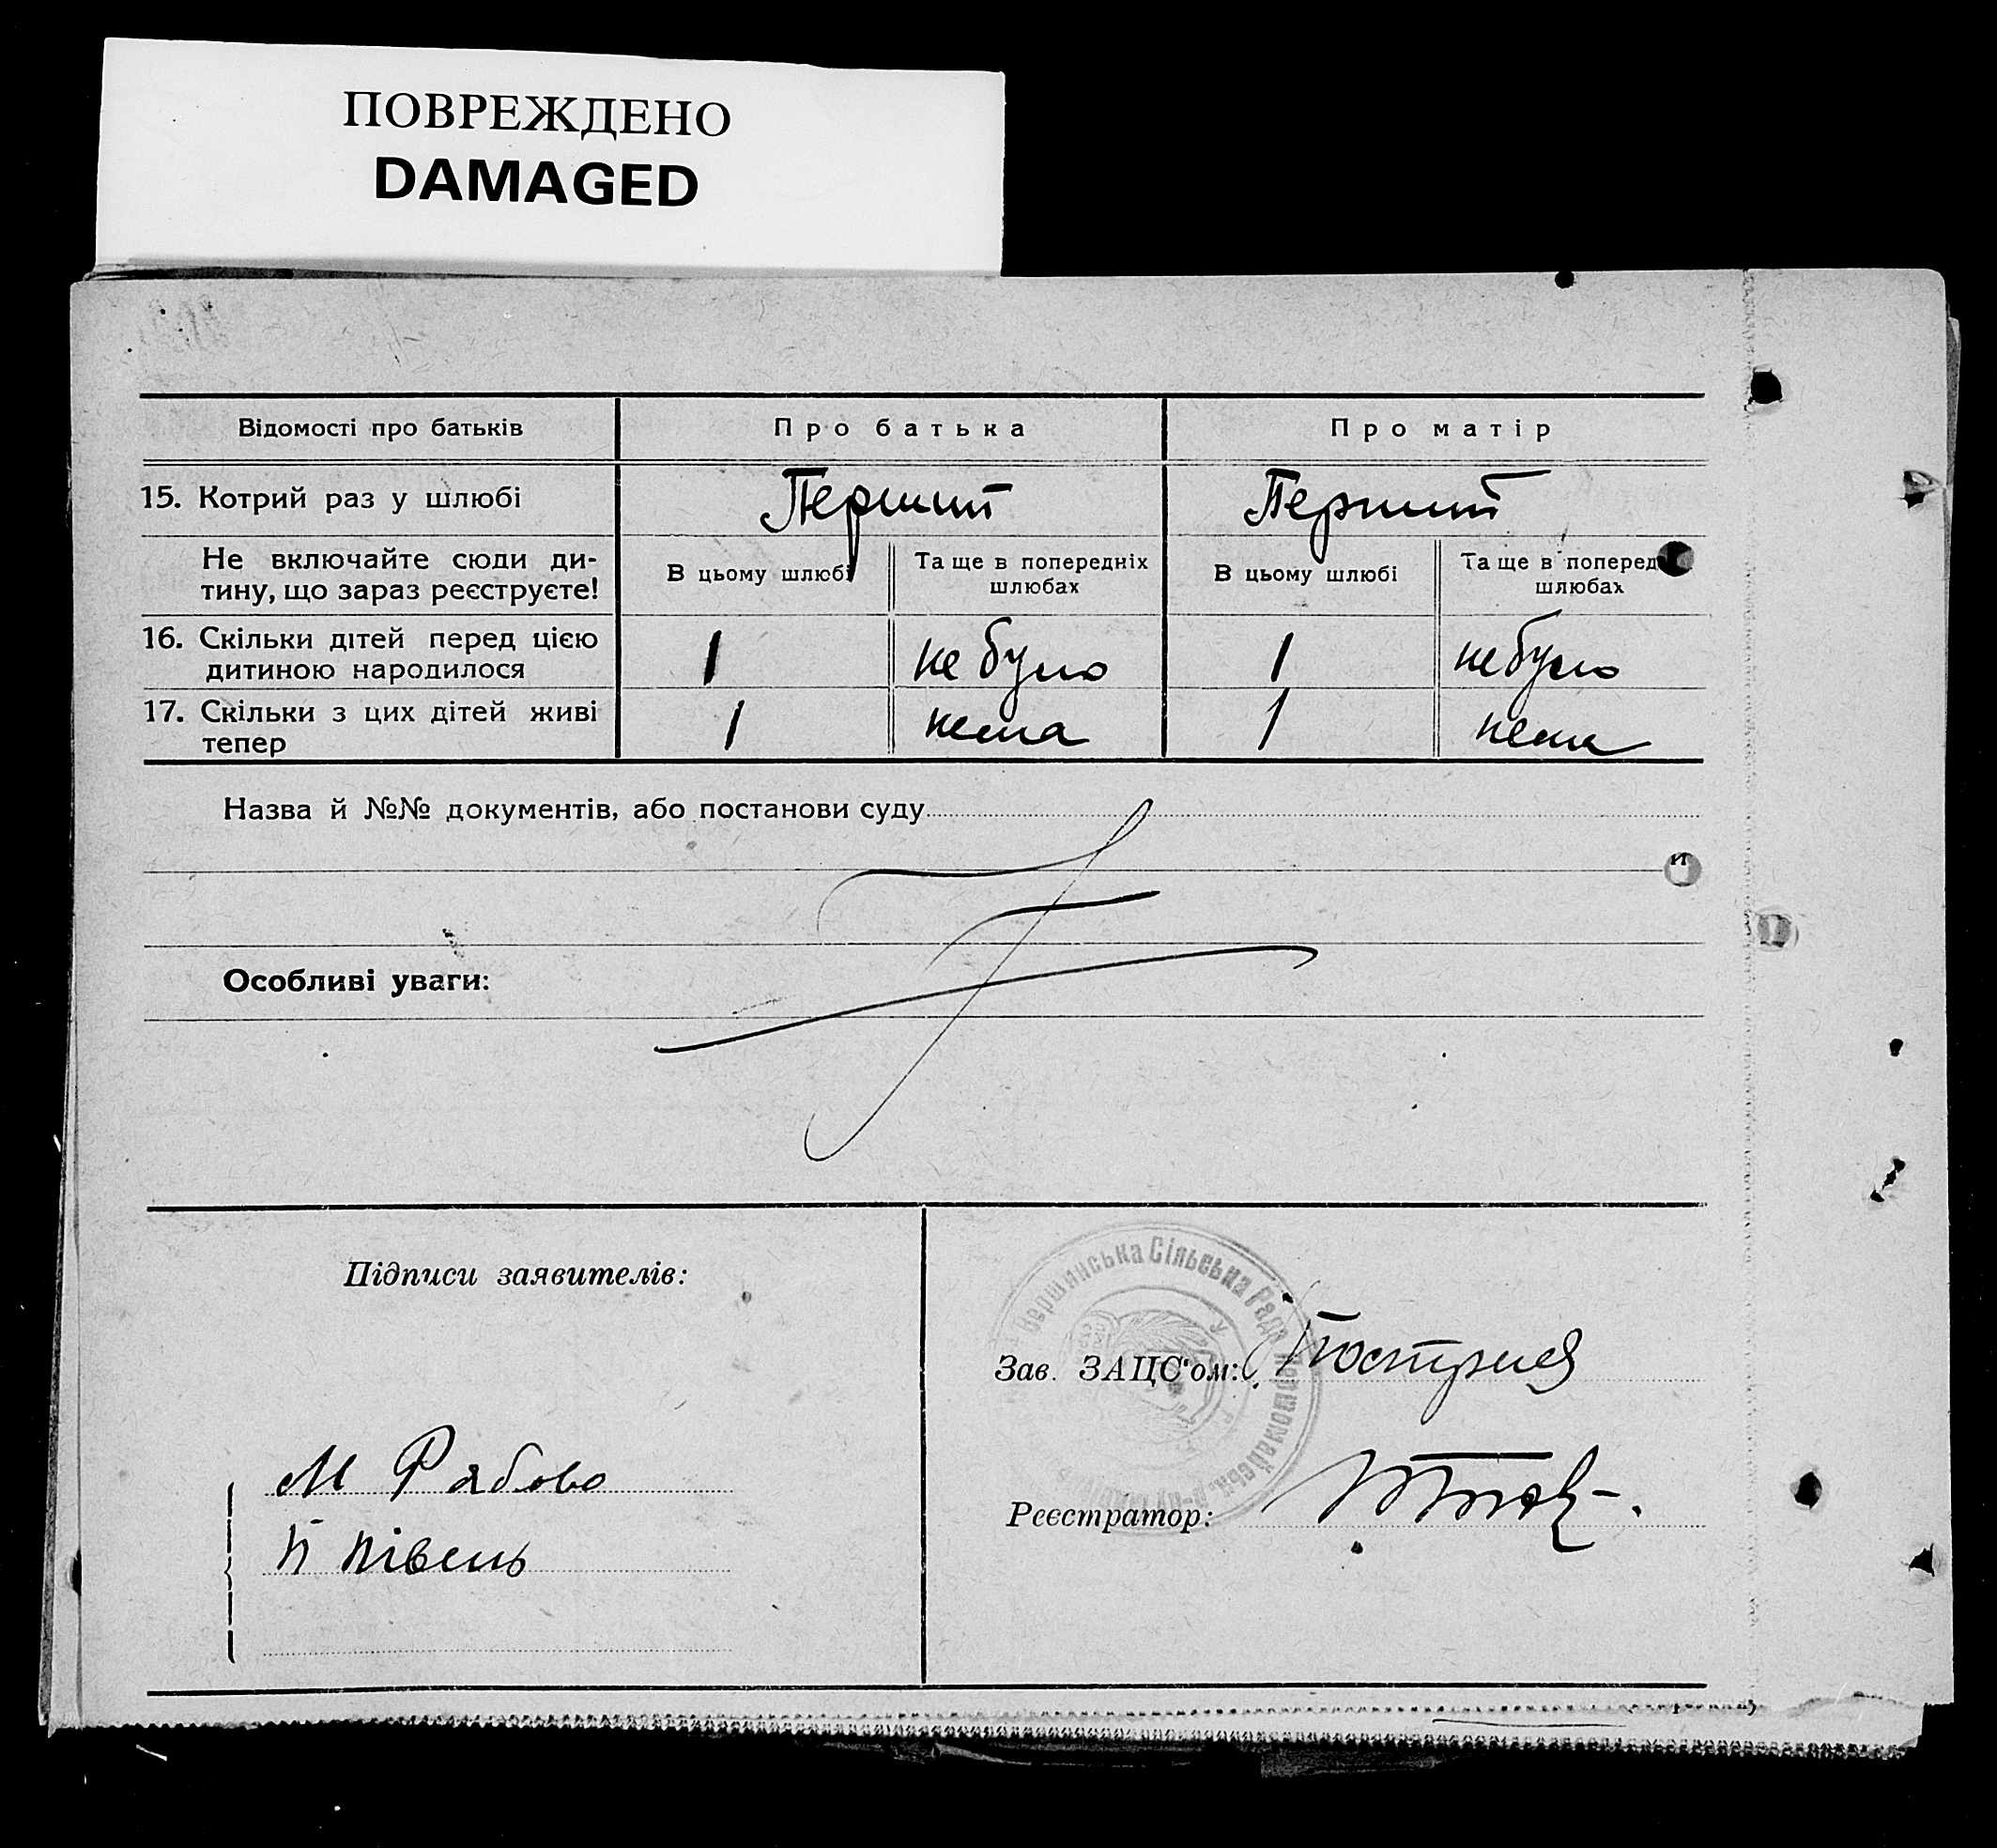 ПОВРЕЖДЕНО
DAMAGED
Відомості про батьків
Про батька
Про матір
15. Котрий раз у шлюбі
Перший
Перший
Не включайте сюди ди-
тину, що зараз реєструєте!
В цьому шлюбі
Та ще в попередніх
шлюбах
В цьому шлюбі
Та ще в поперед
шлюбах
16. Скільки дітей перед цією
дитиною народилося
1
не було
1
не було
17. Скільки з цих дітей живі
тепер
1
нема
1
нема
Назва й №№ документів, або постанови суду
Особливі уваги:
Підписи заявителів:
М Рябово
П Півень
Вершянська Сільська Рада Першомайськ.
Зав. ЗАЦС'ом:
Реєстратор: